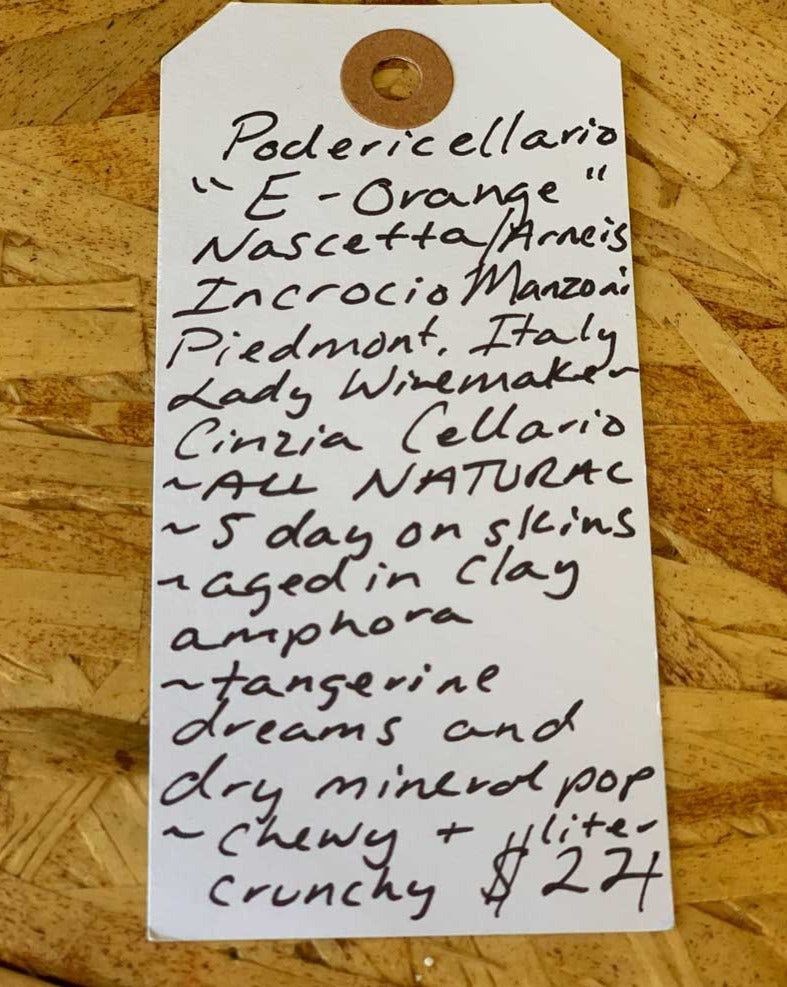 Podericellario
"E-Orange"
Nascetta/Arneis
Incrocio Manzoni
Piedmont, Italy
Lady Winemaker
Cinzia Cellario
~ALL NATURAL
~5 day on skins
~aged in clay
amphora
~tangerine
dreams and
dry mineral pop
~chewy + liter
crunchy $24